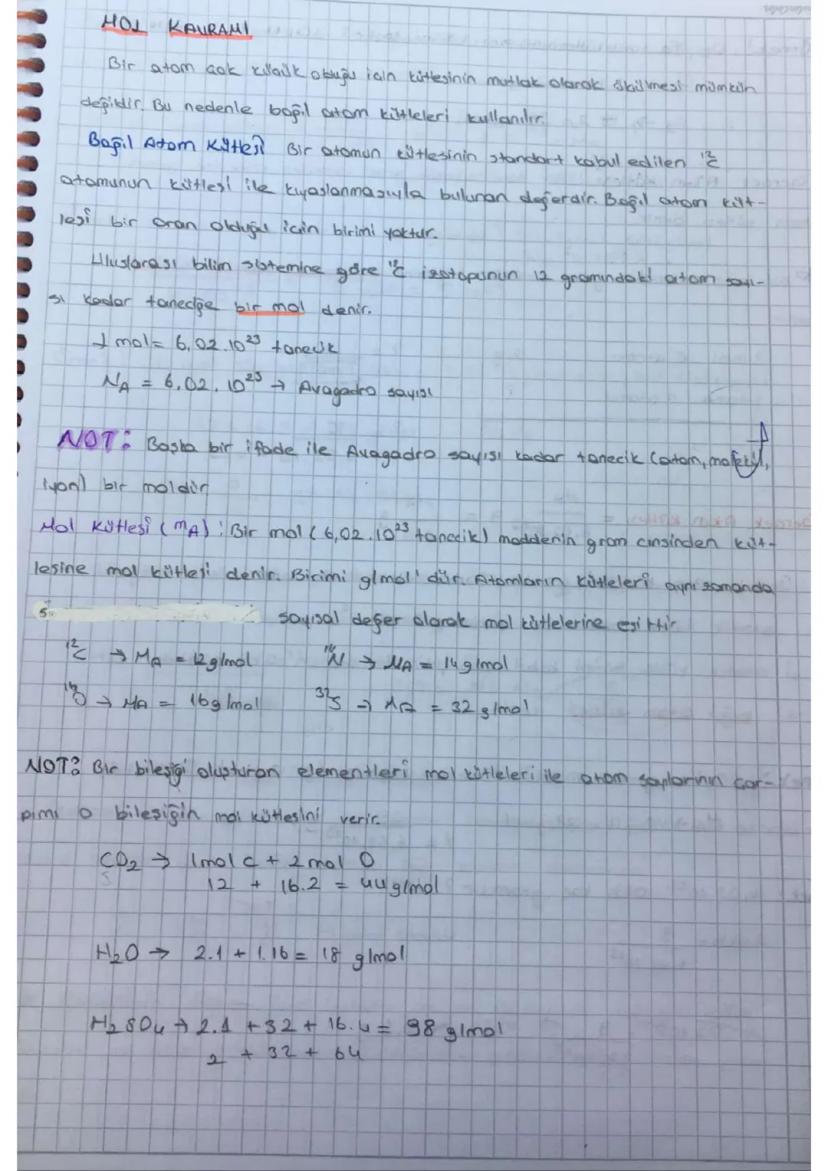 MOL KAVRAMI
Bir atom çok küçük olduğu için kütlesinin mutlak olarak ölçülmesi mümkün
değildir. Bu nedenle bağıl atom kütleleri kullanılır.
Bağıl Atom Kütlesi Bir atomun kütlesinin standart kabul edilen ¹²C
atomunun kütlesi ile kıyaslanmasıyla bulunan değerdir. Bağıl atom küt-
lesi bir oran olduğu için birimi yoktur.
Uluslarası bilim sistemine göre ¹²C izotopunun 12 gramındaki atom sayı-
sı kadar taneciğe bir mol denir.
1 mol = 6,02.10²³ tanecik
NA = 6,02.10²³ → Avagadro sayısı
NOT: Başka bir ifade ile Avagadro sayısı kadar tanecik (atom, molekül,
iyon) bir moldür
Mol Kütlesi (mA): Bir mol (6,02.10²³ tanecik) maddenin gram cinsinden küt-
lesine mol kütlesi denir. Birimi g/mol'dür. Atomların kütleleri aynı zamanda
sayısal değer olarak mol kütlelerine eşittir.
¹²C → MA = 12 g/mol ¹⁴N → MA = 14 g/mol
¹⁶O → MA = 16 g/mol ³²S → MA = 32 g/mol
NOT: Bir bileşiği oluşturan elementleri mol kütleleri ile atom sayılarının çar-
pımı o bileşiğin mol kütlesini verir.
CO₂ → 1mol C + 2 mol O
12 + 16.2 = 44 g/mol
H₂O → 2.1 + 1.16 = 18 g/mol
H₂SO₄ → 2.1 + 32 + 16.4 = 98 g/mol
2 + 32 + 64